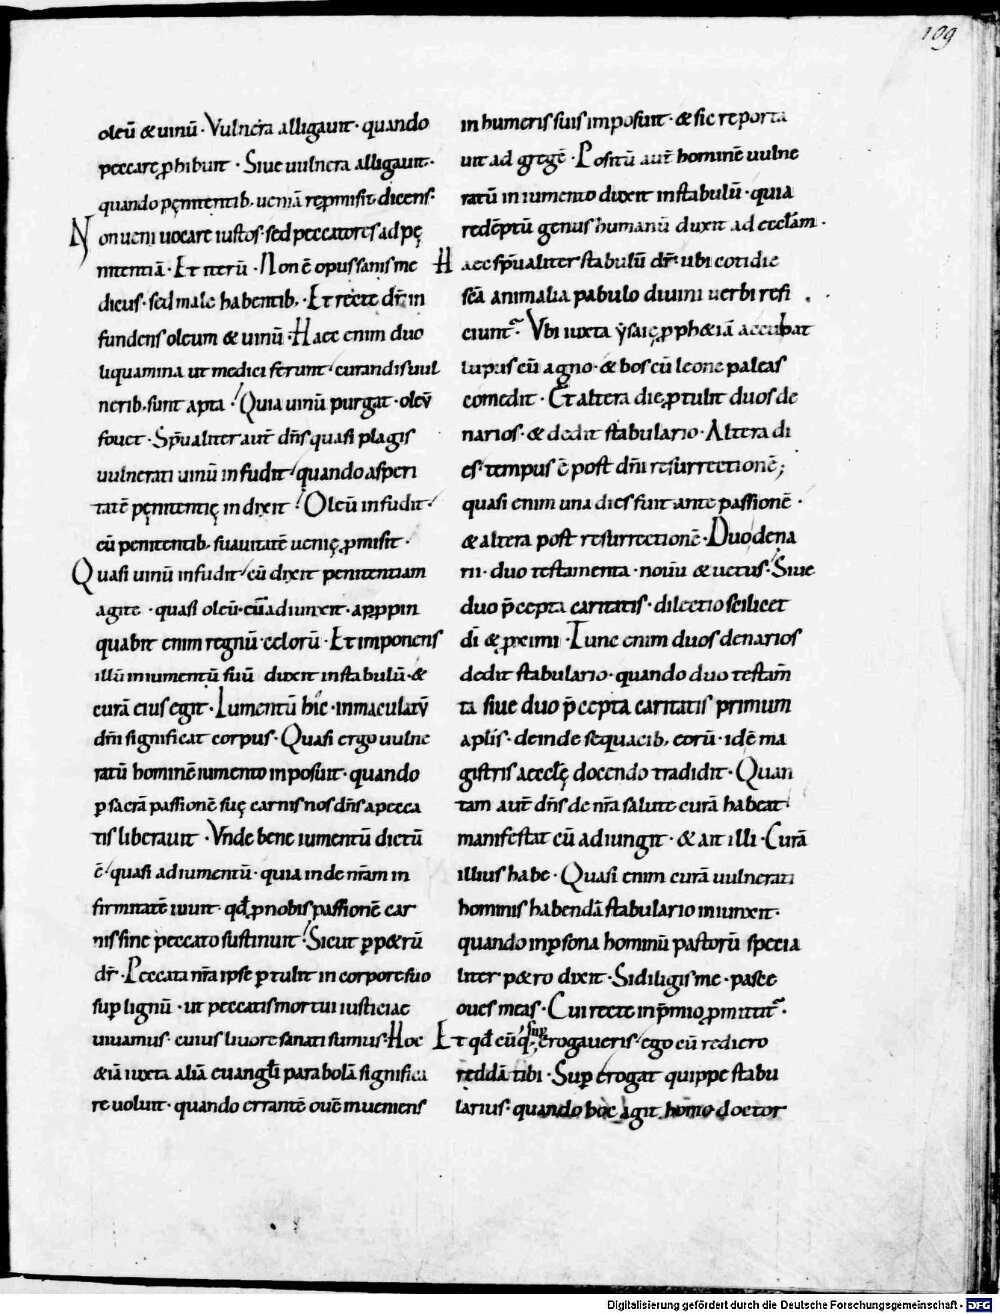 109
oleū & uinū · Vulnera alligauit · quando
peccare ꝓhibuit · Siue uulnera alligauit ·
quando pęnitentib; ueniā repromisit dicens ·
Non ueni uocare iustos · sed peccatores ad pę
nitentiā · Et iterū · Non ē opus sanis me
dicus · sed male habentib; · Et recte dr̄ in
fundens oleum & uinū · Haec enim duo
liquamina ut medici ferunt curandis uul
nerib; sunt apta · Quia uinū purgat · oleū
fouet · Sp̄ualiter aut̄ dn̄s quasi plagis
uulnerati uinū infudit quando asperi
tatē pęnitentię indixit · Oleū infudit
cū penitentib; suauitatē uenię ꝓmisit ·
Quasi uinū infudit cū dixit penitentiam
agite · quasi oleū · cū adiunxit · apꝓpin
quabit enim regnū celorū · Et imponens
illū in iumentū suū duxit in stabulū · &
curā eius egit · Iumentū hic inmaculatū
dn̄i significat corpus · Quasi ergo uulne
ratū hominē iumento inposuit · quando
ꝑ sacrā passionē suę carnis nos dn̄s a pecca
tis liberauit · Vnde bene iumentū dictū
ē quasi adiumentū · quia inde nr̄am in
firmitatē iuuit · qd̄ ꝓ nobis passionē car
nis sine peccato sustinuit · Sicut ꝑ p&rū
dr̄ · Peccata nr̄a ipse ꝑtulit in corpore suo
suꝑ lignū · ut peccatis mortui iusticiae
uiuamus · cuius liuore sanati sumus · Hoc
&iā iuxta aliā euangl̄i parabolā significa
re uoluit · quando errantē ouē inueniens
in humeris suis imposuit · & sic reporta
uit ad gregē · Positū aut̄ hominē uulne
ratū in iumento duxit in stabulū · quia
redēptū genus humanū duxit ad eccl̄am ·
Haec sp̄ualiter stabulū dr̄ · ubi cotidie
sc̄a animalia pabulo diuini uerbi refi
ciunt᷑ · Vbi iuxta ysaię ꝓph&iā accubat
lupus cū agno · & bos cū leone paleas
comedit · Et altera die ꝓtulit duos de
narios · & dedit stabulario · Altera di
es · tempus ē post dn̄i resurrectionē ;
quasi enim una dies fuit ante passionē ·
& altera post resurrectionē · Duo dena
rii · duo testamenta · nouū & uetus · Siue
duo p̄cepta caritatis · dilectio scilicet
dī & ꝓximi · Tunc enim duos denarios
dedit stabulario · quando duo testam̄
ta siue duo p̄cepta caritatis primum
aplīs · deinde sequacib; eorū · idē ma
gistris aecclę̄ docendo tradidit · Quan
tam aut̄ dn̄s de nr̄a salute curā habeat
manifestat cū adiungit · & ait illi · Curā
illius habe · Quasi enim curā uulnerati
hominis habendā stabulario iniunxit ·
quando in ꝑsona hominū pastorū specia
liter p&ro dixit · Si diligis me · pasce
oues meas · Cui recte in p̄mio ꝓmittit᷑ ·
Et qd̄ cūq; sup erogaueris · ego cū rediero
reddā tibi · Suꝑ erogat quippe stabu
larius · quando hoc agit homo doctor
Digitalisierung gefördert durch die Deutsche Forschungsgemeinschaft - DFG